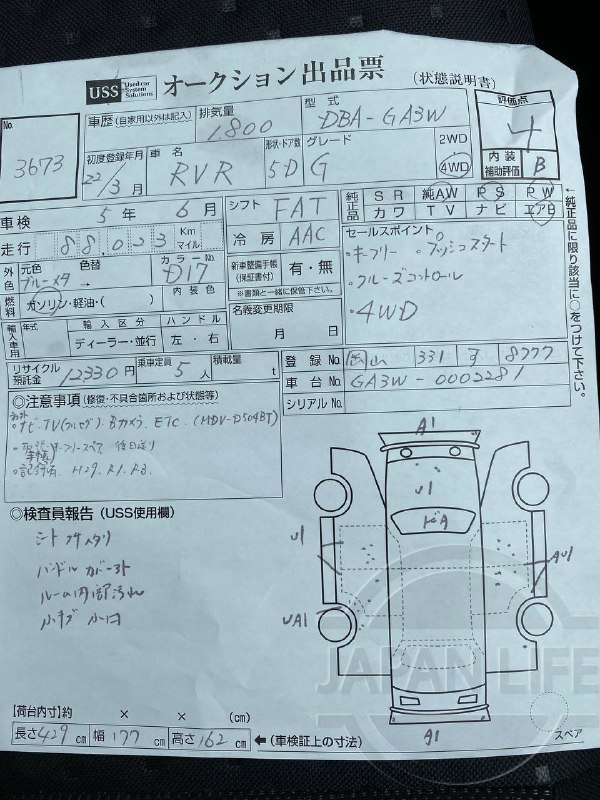 USS Used car System Solutions オークション出品票 (状態説明書)
No. 3673
車歴 (自家用以外は記入) 排気量 1800 型式 DBA-GA3W
評価点 4
内装補助評価 B
初度登録年月 22/3月 車名 RVR 形状・ドア数 5D グレード G 2WD 4WD
車検 5年 6月 シフト FAT
純正品 SR 純AW PS PW
カワ TV ナビ エアB
走行 88,023 Km マイル 冷房 AAC
セールスポイント
・キーフリー ・プッシュスタート
・クルーズコントロール
・4WD
外色 元色 ブルーメタ 色替 カラーNo. D17
新車整備手帳(保証書付) 有・無
※書類と一緒に保管下さい。
燃料 ガソリン・軽油・( ) 内装色
名義変更期限 月 日
輸入車用 年式 輸入区分 ハンドル
ディーラー・並行 左・右
←純正品に限り該当に○をつけて下さい。
リサイクル預託金 12330円 乗車定員 5人 積載量 t
登録No. 岡山 331 す 8777
車台No. GA3W-0002281
シリアルNo.
◎注意事項 (修復・不具合箇所および状態等)
ナビ・TV(フルセグ) Bカメラ ETC (MDV-D504BT)
キーフリースペア 後日送り
・記録簿 H29. R1. R3.
◎検査員報告 (USS使用欄)
シートコゲ スリ
ハンドル
ルーム内部汚れ
小キズ 小凹
A1
U1
ドA
U1
AU1
UA1
A1
スペア
JAPAN LIFE
【荷台内寸】約 × × (cm)
長さ 429 cm 幅 177 cm 高さ 162 cm ←(車検証上の寸法)